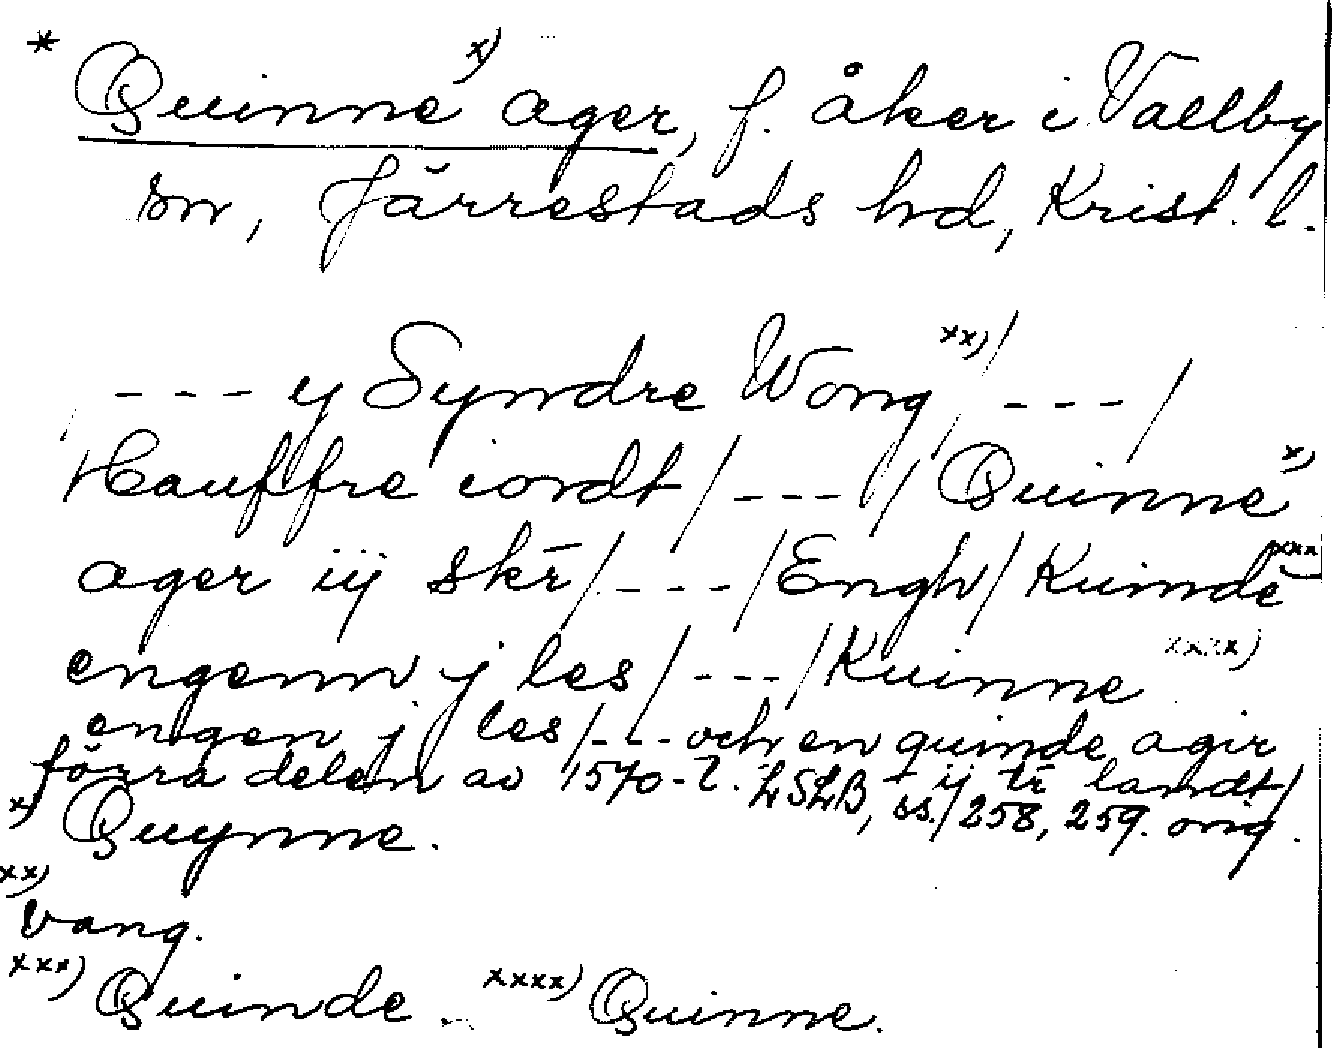 * Quinne x) ager, f. åker i Vallby
sn, Järrestads hd, Krist. l.
- - - y Syndre Wong xx) / - - - /
Hauffre iordt / - - - / Quinne x)
ager iij skr̄ / - - - / Engh / Kuinde xxx)
engenn j les / - - - / Kuinne xxxx)
engen j les / - - - och en quinde agir
förra delen av 1570-t. LSLB, ss. 258, 259. orig.
ij tr̄ landt /
x) Quynne.
xx)
vang.
xxx) Quinde. xxxx) Quinne.